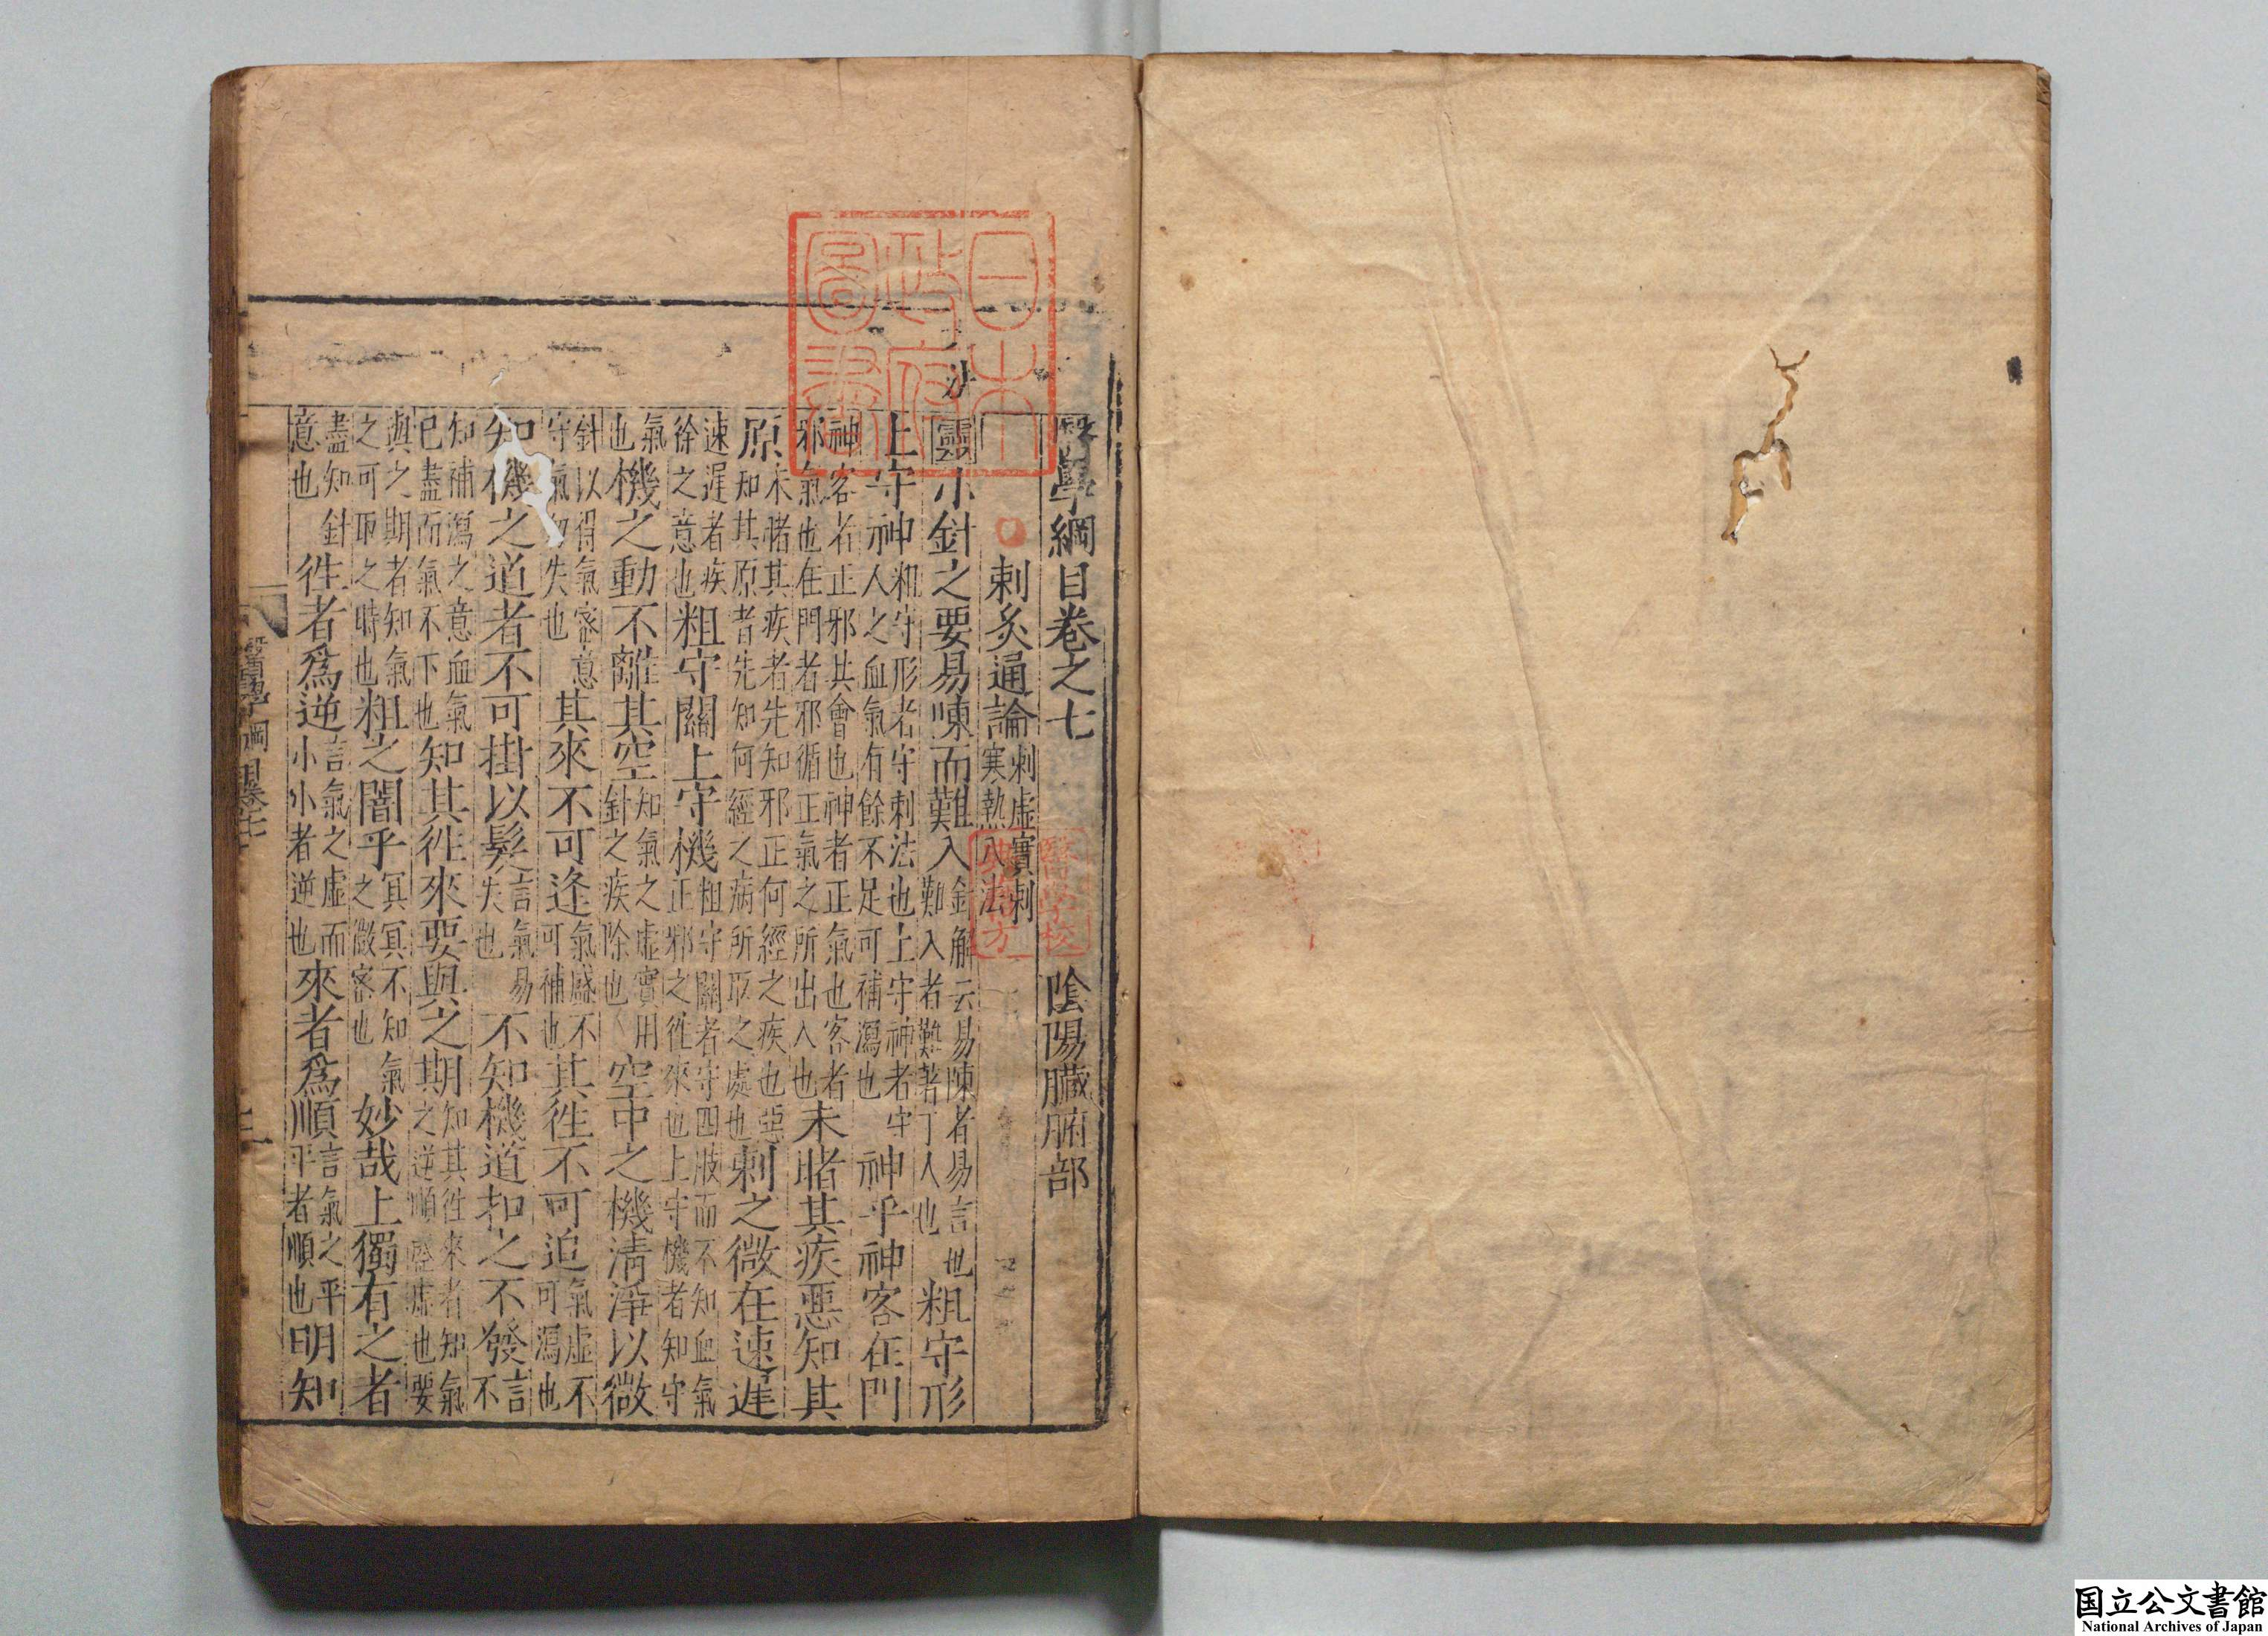 醫學綱目卷之七　陰陽臟腑部
刺灸通論刺虛實刺寒熱八法
靈小針之要易陳而難入針解云易陳者易言也難入者難著于人也粗守形
上守神粗守形者守刺法也上守神者守人之血氣有餘不足可補瀉也神乎神客在門
神客者正邪共會也神者正氣也客者邪氣也在門者邪循正氣之所出入也未睹其疾惡知其
原未睹其疾者先知邪正何經之疾也惡知其原者先知何經之病所取之處也刺之微在速遲
速遲者疾徐之意也粗守關上守機粗守關者守四肢而不知血氣正邪之徃來也上守機者知守
氣也機之動不離其空知氣之虛實用針之疾除也空中之機清淨以微
針以得氣密意守氣勿失也其來不可逢氣盛不可補也其徃不可追氣虛不可瀉也
知機之道者不可掛以髮言氣易失也不知機道扣之不發言不
知補瀉之意血氣已盡而氣不下也知其徃來要與之期知其徃來者知氣之逆順盛虛也要
與之期者知氣之可取之時也粗之闇乎冥冥不知氣之微密也妙哉上獨有之者
盡知針意也徃者爲逆言氣之虛而小小者逆也來者爲順言氣之平平者順也明知
醫學綱目卷七
日本政府圖書
国立公文書館
National Archives of Japan